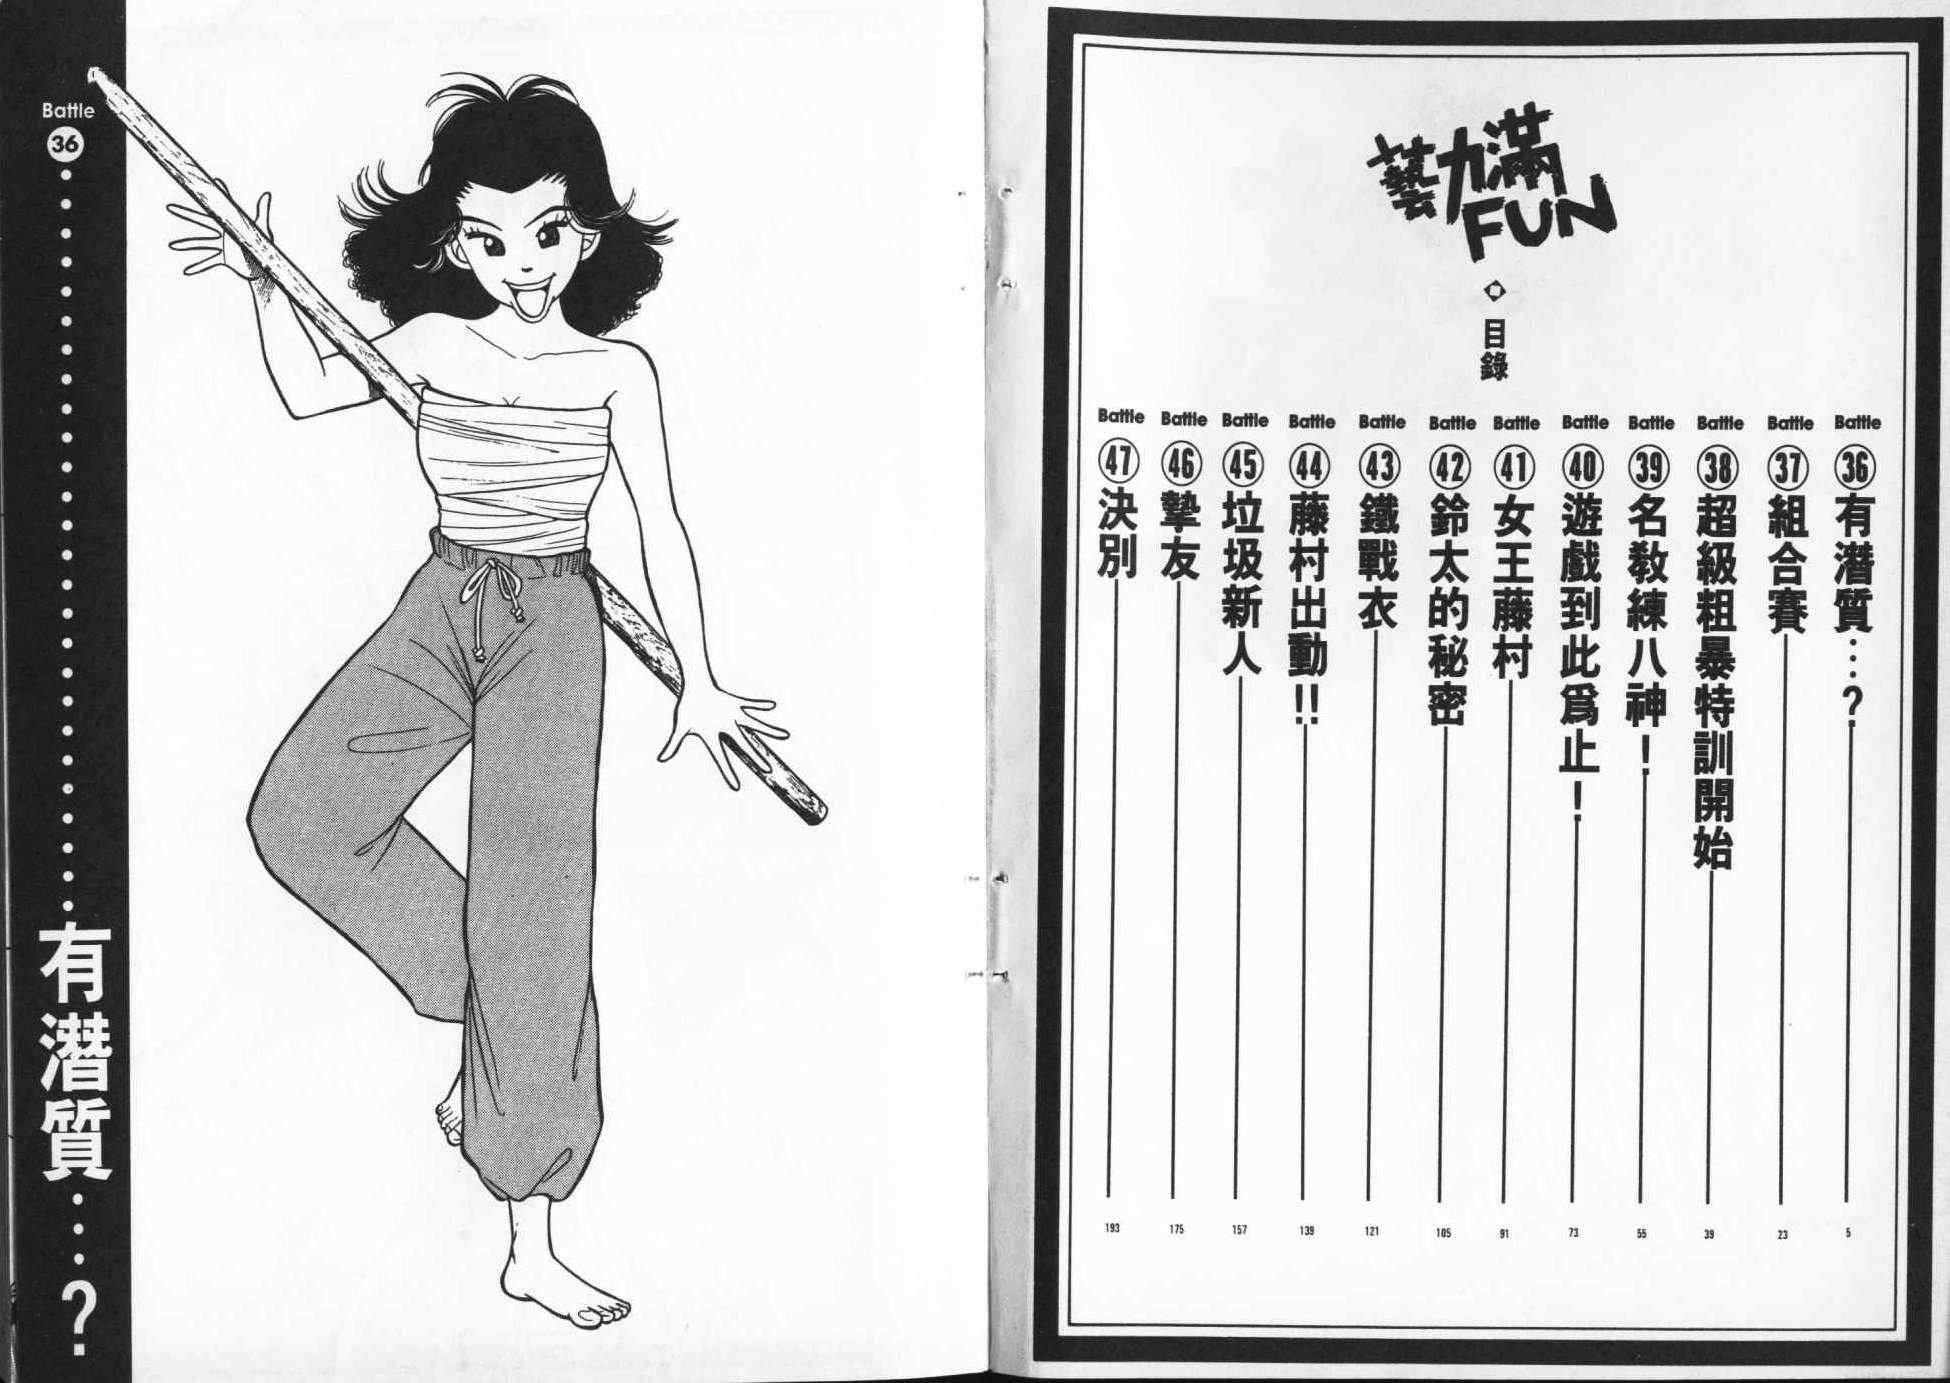 藝力滿
FUN
目錄
Battle
36有潛質…?
5
Battle
37組合賽
23
Battle
38超級粗暴特訓開始
39
Battle
39名教練八神!
55
Battle
40遊戲到此爲止!
73
Battle
41女王藤村
91
Battle
42鈴太的秘密
105
Battle
43鐵戰衣
121
Battle
44藤村出動!!
139
Battle
45垃圾新人
157
Battle
46摯友
175
Battle
47決別
193
Battle
36
有潛質…?